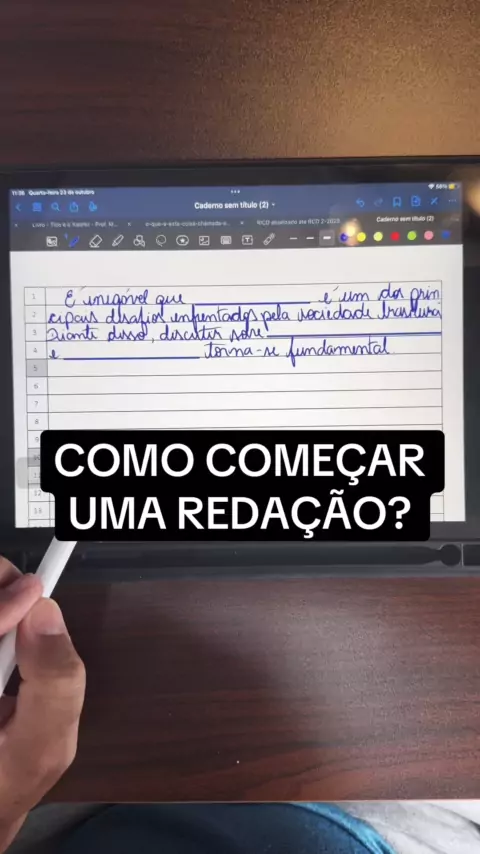 11:26 Quarta-feira 23 de outubro
56%
Caderno sem título (2)
Livro - Tipo e o Teatro - Prof. M...
o-que-e-esta-coisa-chamada-c...
RCD atualizado ate RCD 2-2023
Caderno sem título (2)
1 É inegável que ______ é um dos prin
2 cipais desafios enfrentados pela sociedade brasileira
3 Diante disso, discutir sobre ______
4 e ______ torna-se fundamental
5
6
7
8
9
COMO COMEÇAR
UMA REDAÇÃO?
12
13
14